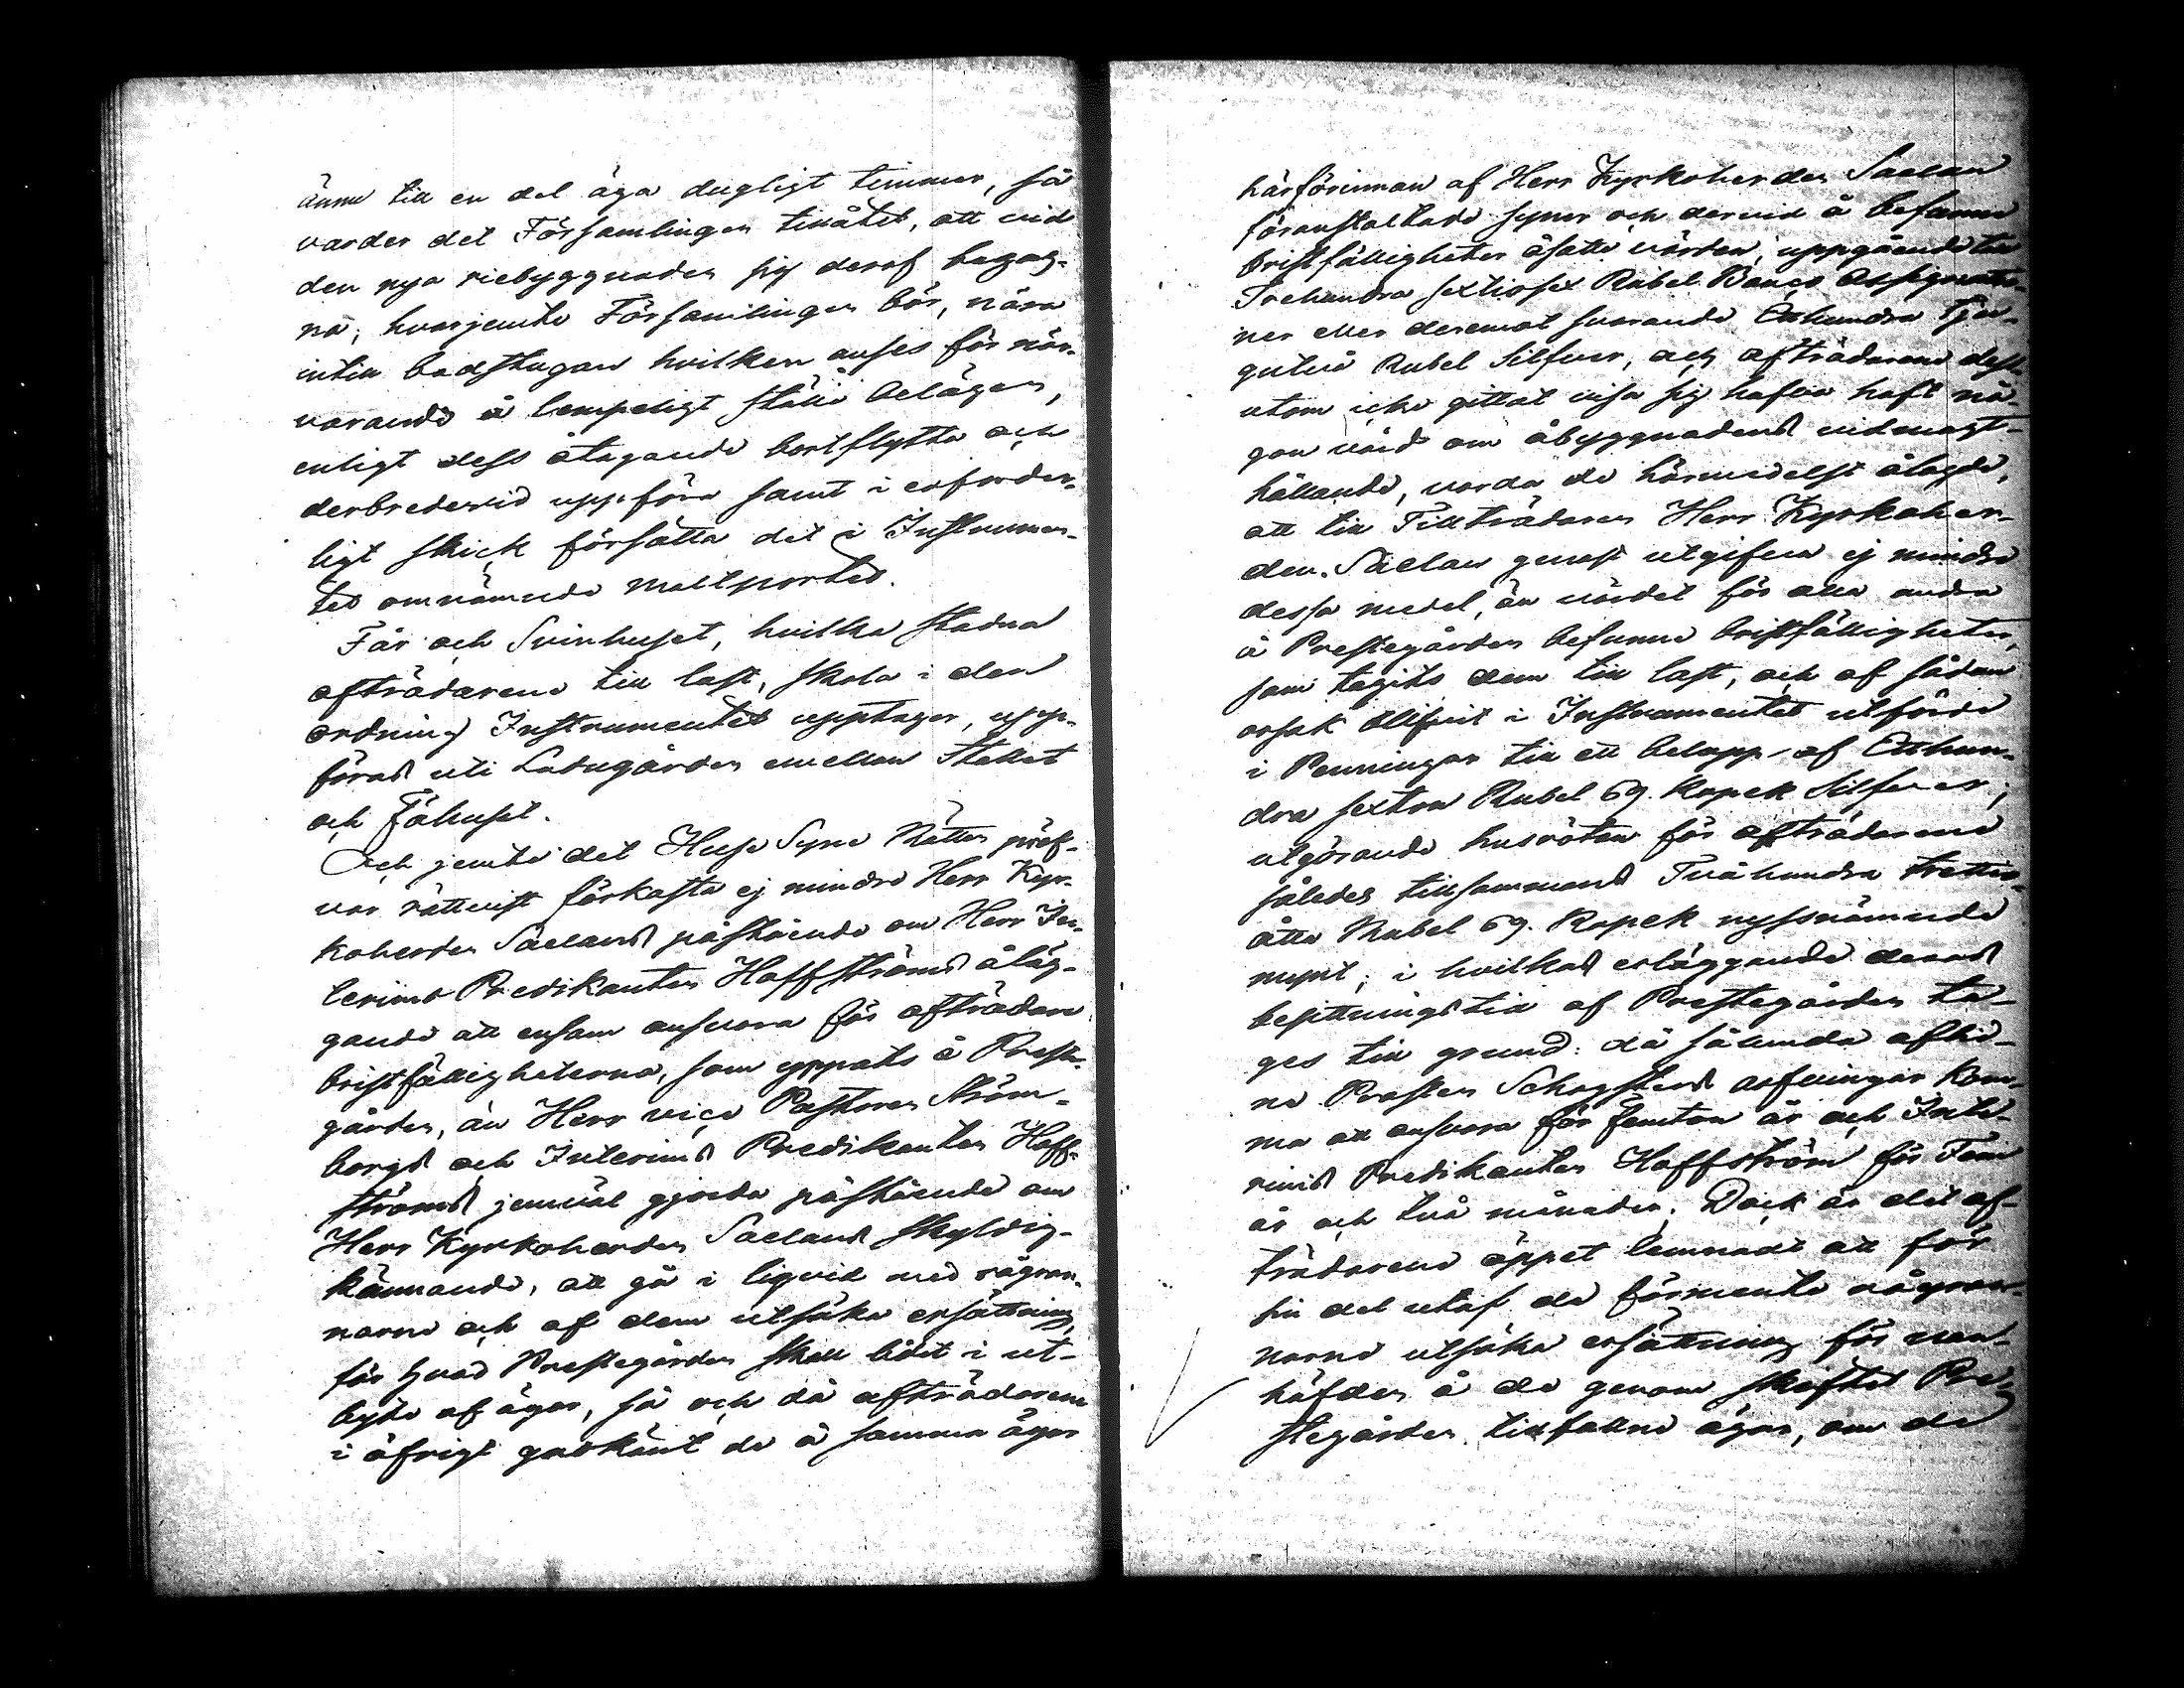 ännu till en del äga dugligt timmer, så
varder det Församlingen tillåtet, att vid
den nya riebyggnaden sig deraf begag-
na; hvarjemte Församlingen bör, nära
intill badstugan hvilken anses för när-
varande å lempeligt ställe belägen,
enligt dess åtagande bortflytta och
derbredevid uppföra samt i erforder-
ligt skick försätta det i Instrumen-
tet omnämnde maltportet.
Får och Svinhuset, hvilka stadna
afträdarene till last, skola i den
ordning Instrumentet upptager, upp-
föras uti Ladugården emellan Stallet
och Fähuset.
Och jemte det Huse Syne Rätten pröf-
var rättvist förkasta ej mindre Herr Kyr-
koherden Saelans påstående om Herr In-
terims Predikanten Hoffströms åläg-
gande att ensam ansvara för afträdare
bristfälligheterna, som yppats å Preste-
gården, än Herr vice Pastoren Ström-
borgs och Interims Predikanten Hoff-
ströms jemväl gjorda påstående om
Herr Kyrkoherden Saelans skyldig-
kännande, att gå i liqvid med rågran-
narne och af dem utsöka ersättning
för hvad Prestegården skall lidit i ut-
byte af ägor, så och då afträdarene
i öfrigt godkänt de å samma ägor
härförinnan af Herr Kyrkoherden Saelan
föranstaltade syner och dervid å befunne
bristfälligheter åsatte värden, uppgående till
Trehundra sextiosex Rubel Banco Assignatio-
ner eller deremot svarande Etthundra tju-
gutvå Rubel Silfver, och afträdarene dess-
utom icke gittat visa sig hafva haft nå-
gon vård om åbyggnadens vidmagt-
hållande, varda de härmedelst ålagde,
att till Tillträdaren Herr Kyrkoher-
den Saelan genast utgifva ej mindre
dessa medel, än värdet för alla andra
å Prestegården befunne bristfälligheter,
som tagits dem till last, och af sådan
orsak blifvit i Instrumentet utförde
i Penningar till ett belopp af Etthun-
dra sexton Rubel 69. Kopek Silfver;
utgörande husrötan för afträdarene
således tillsammans Tvåhundra trettio-
åtta Rubel 69. Kopek nyssnämnde
mynt; i hvilkas erläggande deras
besittningstid af Prestegården ta-
ges till grund: då sålunda aflid-
ne Prosten Schogsters arfvingar kom-
ma att ansvara för femton år och Inte-
rims Predikanten Hoffström för Fem
år och två månader. Dock är det af-
trädarene öppet lemnadt att för
sin del utaf de förmente rågran-
narne utsöka ersättning för van-
häfden å de genom skiftet Pre-
stegården tillfallne ägor, om de